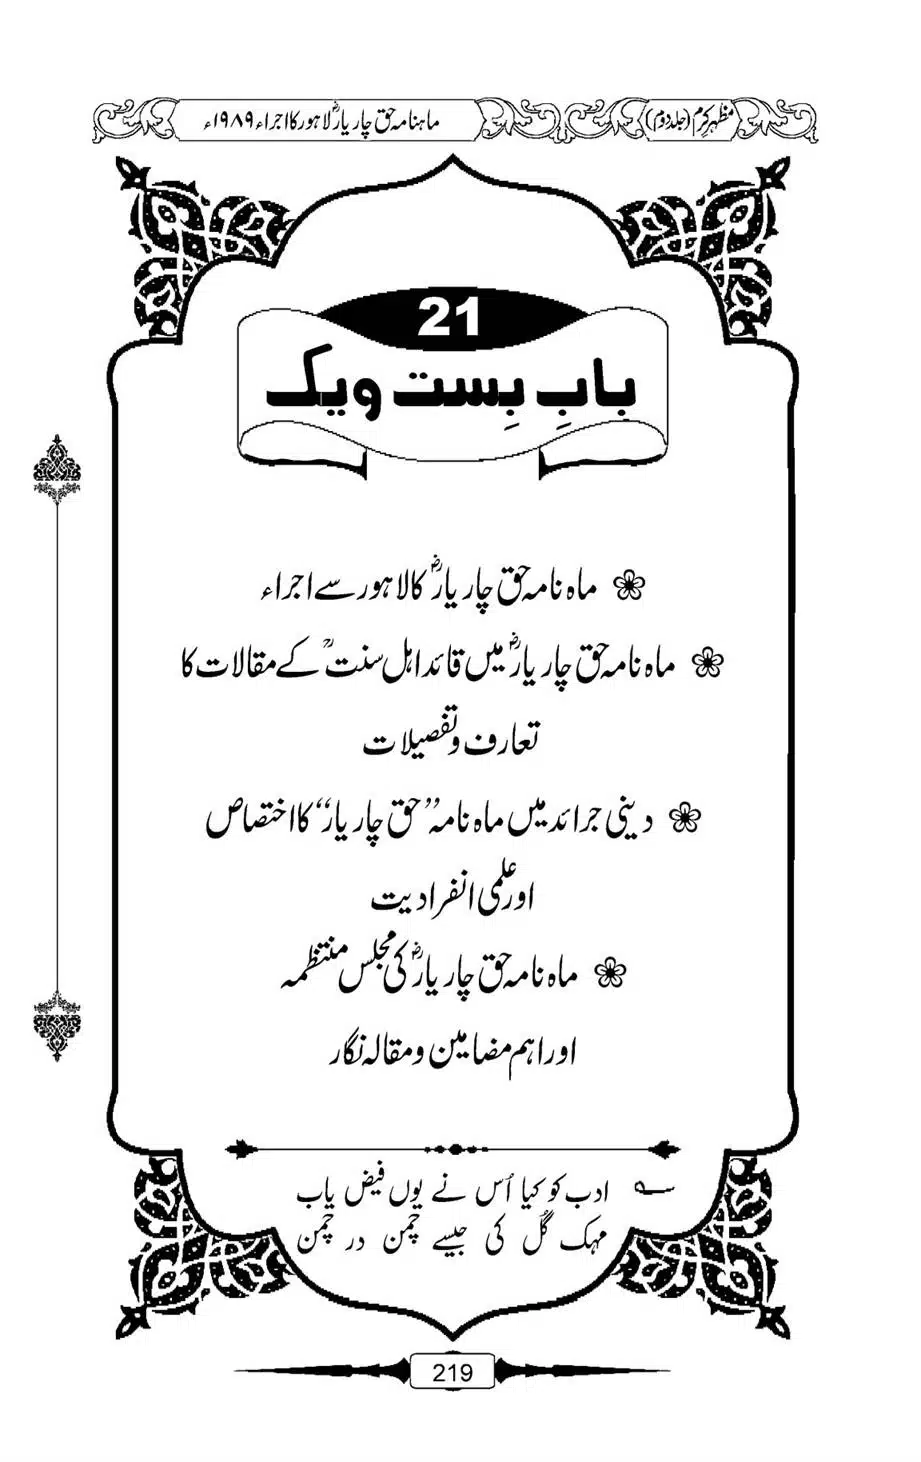 مظہرِ کرم (جلد دوم) ماہنامہ حق چار یارؓ لاہور کا اجراء ۱۹۸۹ء
21
بابِ بِست و یک
ماہ نامہ حق چار یارؓ کا لاہور سے اجراء
ماہ نامہ حق چار یارؓ میں قائد اہل سنتؒ کے مقالات کا
تعارف و تفصیلات
دینی جرائد میں ماہ نامہ ”حق چار یار“ کا اختصاص
اور علمی انفرادیت
ماہ نامہ حق چار یارؓ کی مجلس منتظمہ
اور اہم مضامین و مقالہ نگار
؎ ادب کو کیا اُس نے یوں فیض یاب
مہک گُل کی جیسے چمن در چمن
219